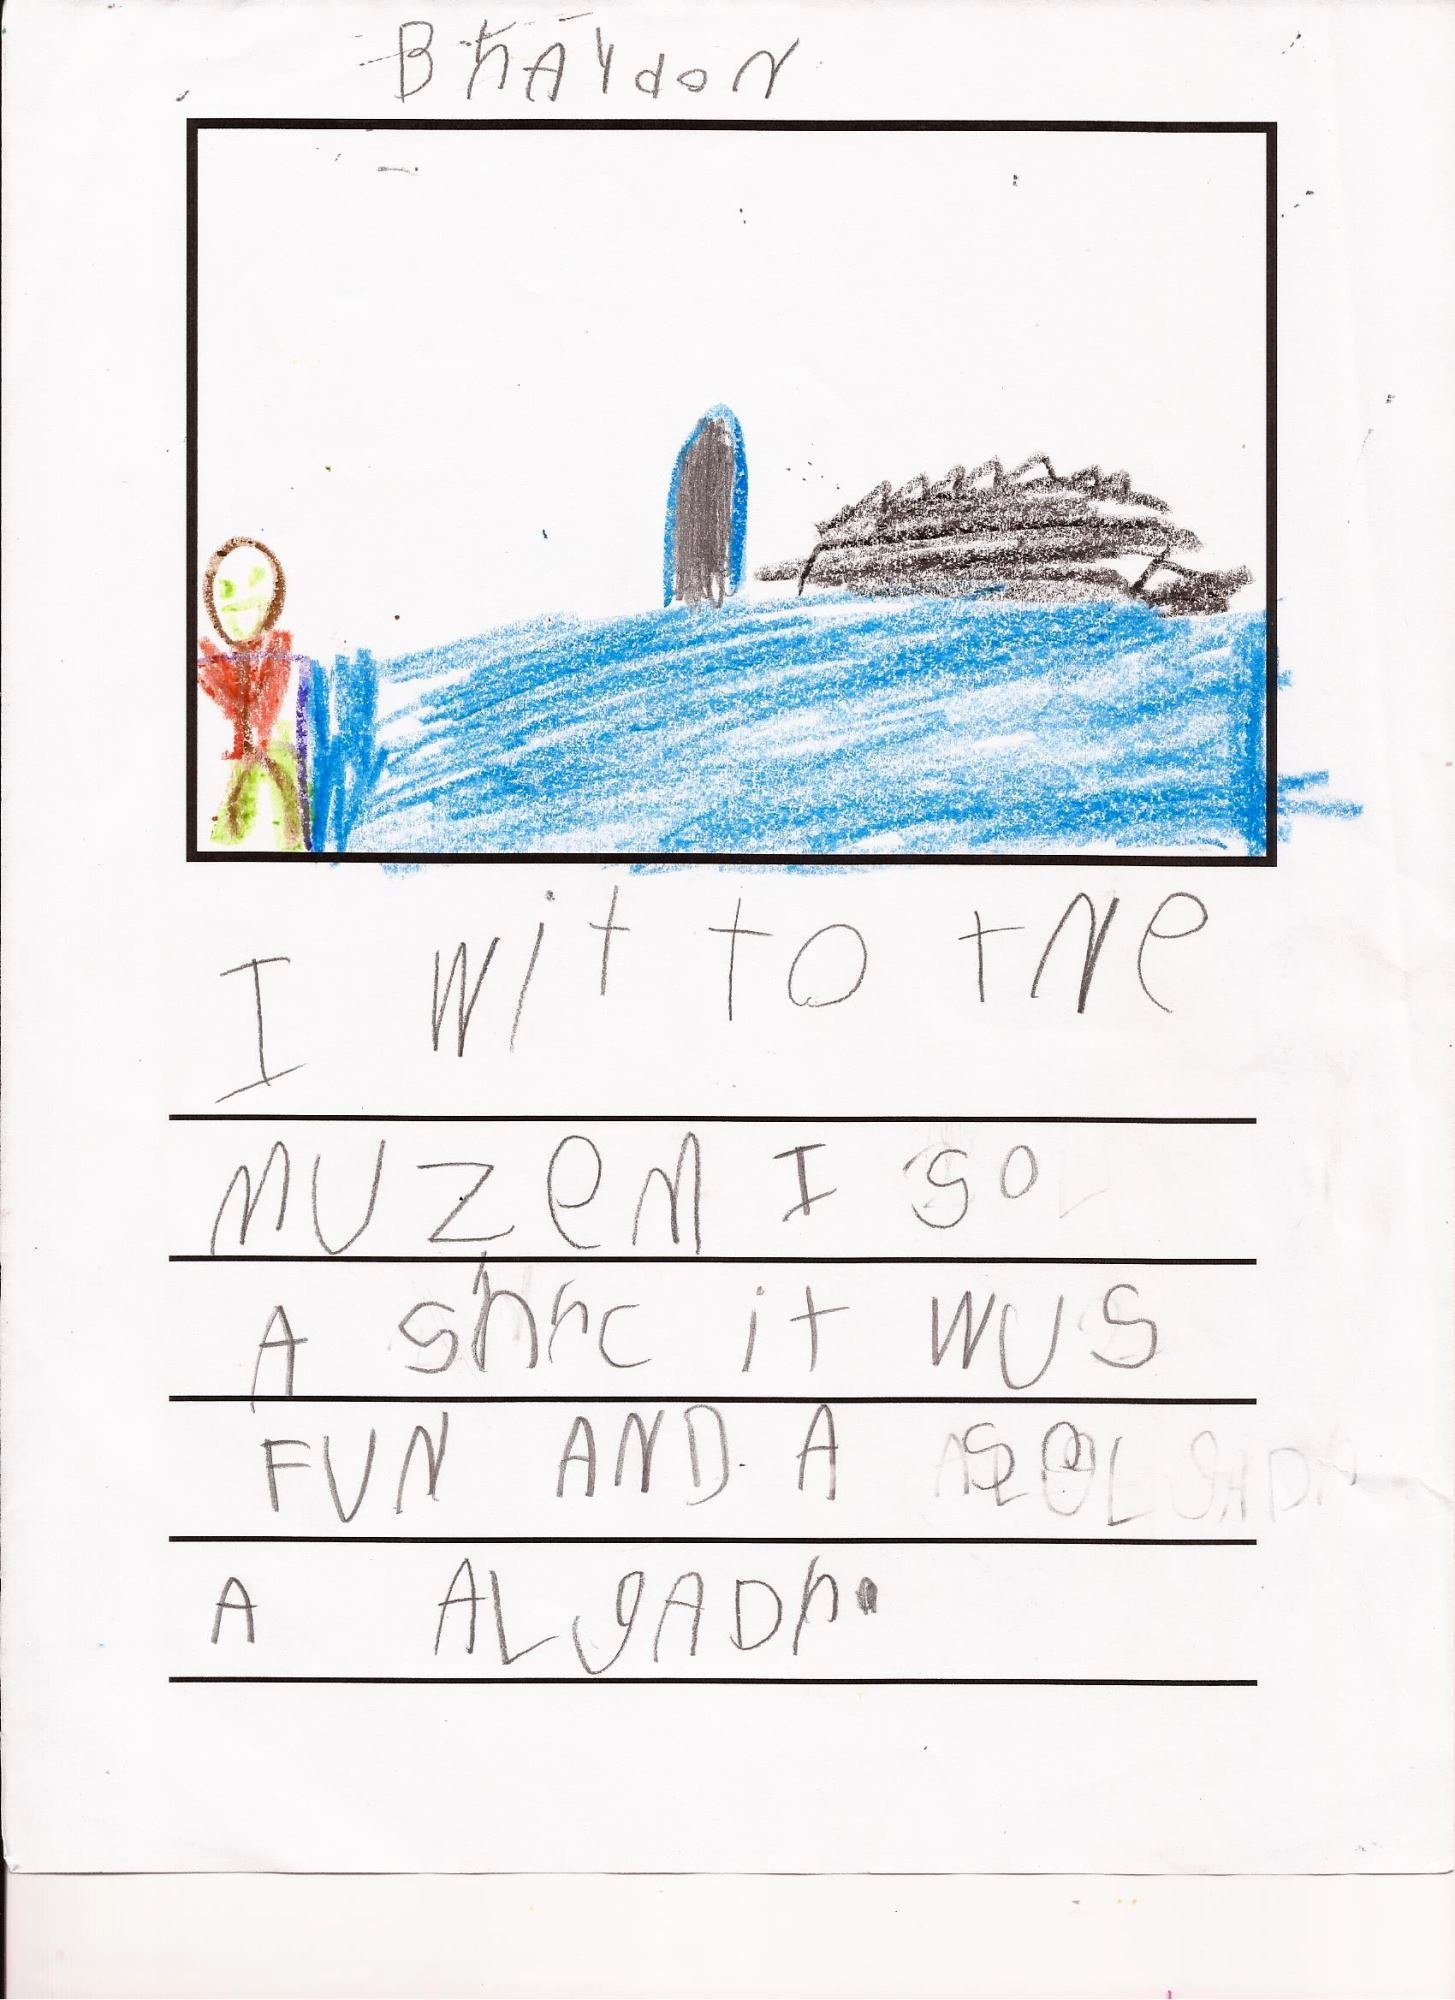 BrAYdoN
I wit to the
MUZeM I so
A shrc it WUS
FUN AND A
A ALgADr.